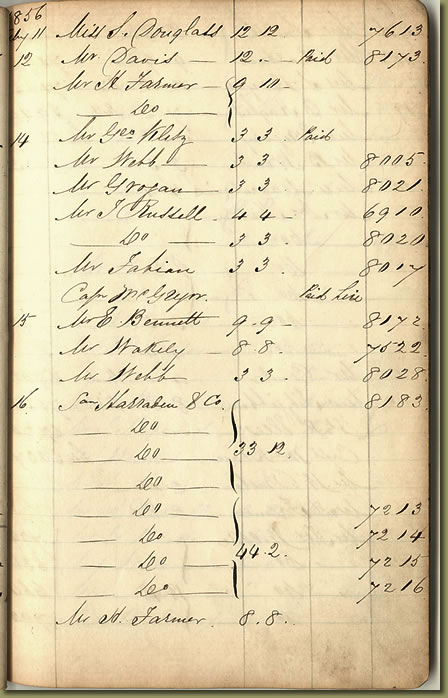 1856
11 Miss S. Douglass 12 12 7613
12 Mr. Davis 12 . - Paid 8173
Mr H Farmer 9 10 -
Do
14 Mr Geo 3 3 Paid
Mr Webb 3 3 8005
Mr Grogan 3 3 8021
Mr J Russell 4 4 - 6910
Do 3 3 8020
Mr Fabian 3 3 8017
Capn McGregor. Paid
15 Mr E. Bennett 9 . 9 - 8172
Mr Wakely 8 . 8 . 7522
Mr Webb 3 3 8028
16 Harraden & Co. 8183
Do
Do 33 12
Do
Do 7213
Do 7214
Do 44 . 2 . 7215
Do 7216
Mr H. Farmer. 8 . 8 .